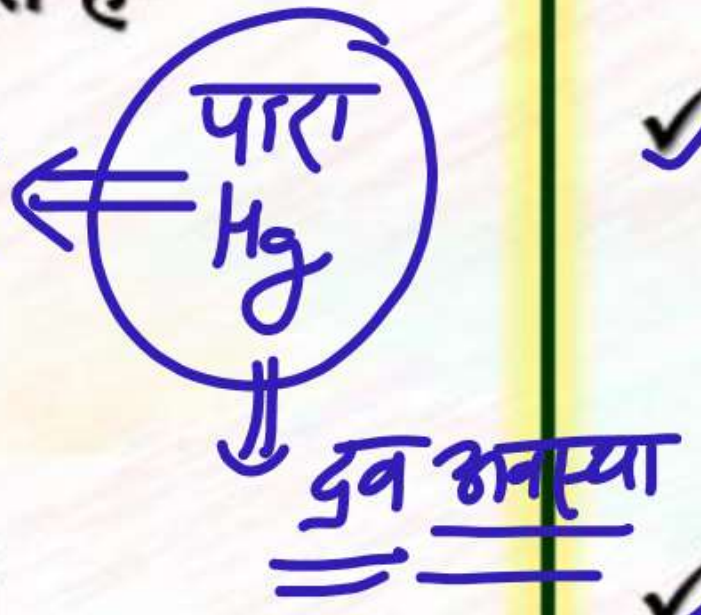 पारा
Hg
द्रव अवस्था